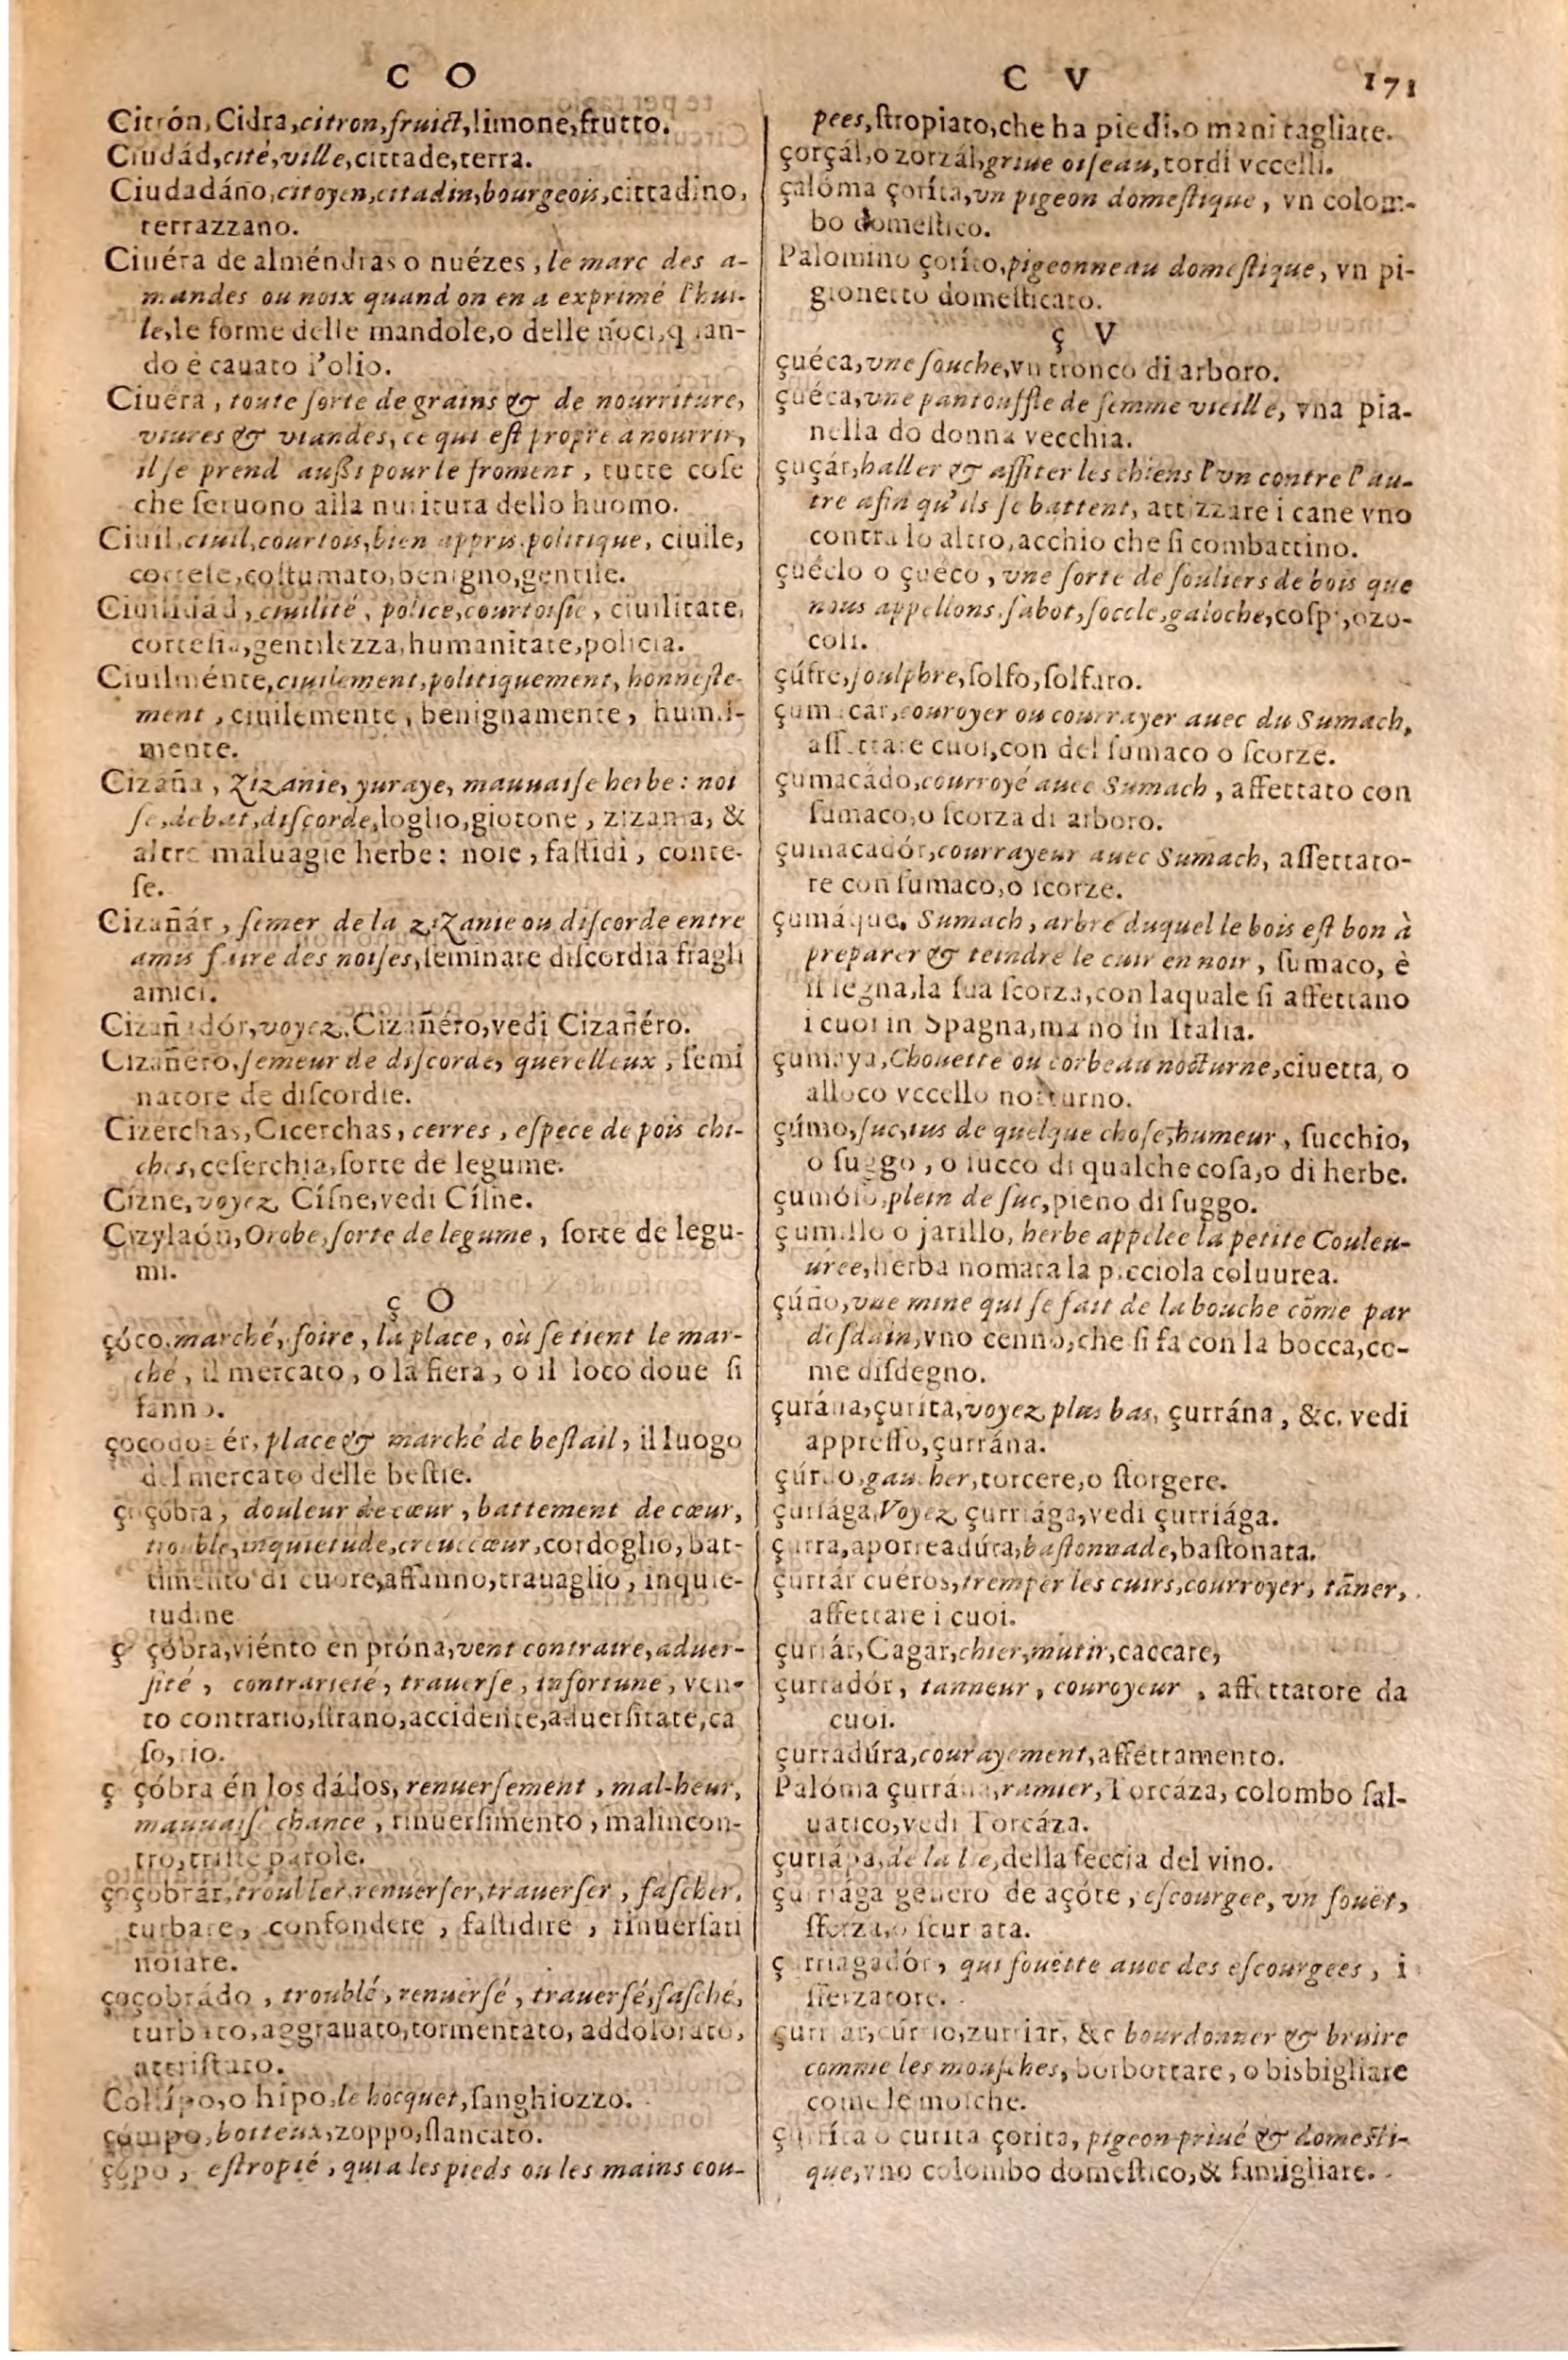 C O
Citrón, Cidra, citron, fruict, limone, frutto.
Ciudád, cité, ville, cittade, terra.
Ciudadáno, citoyen, citadin, bourgeois, cittadino,
terrazzano.
Ciuéra de alméndras o nuézes, le marc des a-
mandes ou noix quand on en a exprimé l'hui-
le, le forme delle mandole, o delle noci, quan-
do è cauato l'olio.
Ciuéra, toute sorte de grains & de nourriture,
viures & viandes, ce qui est propre à nourrir,
il se prend aussi pour le froment, tutte cose
che seruono alla nuritura dello huomo.
Ciuil, ciuil, courtois, bien appris, politique, ciuile,
cortese, costumato, benigno, gentile.
Ciuilidád, ciuilité, police, courtoisie, ciuilitate,
cortesia, gentilezza, humanitate, policia.
Ciuilménte, ciuilement, politiquement, honneste-
ment, ciuilemente, benignamente, humil-
mente.
Cizaña, Zizanie, yuraye, mauuaise herbe: noi
se, debat, discorde, loglio, giotone, zizania, &
altre maluagie herbe: noie, fastidi, conte-
se.
Cizañár, semer de la ziZanie ou discorde entre
amis faire des noises, seminare discordia fragli
amici.
Cizañadór, voyez, Cizañéro, vedi Cizañéro.
Cizañéro, semeur de discorde, querelleux, semi
natore de discordie.
Cizerchas, Cicerchas, cerres, espece de pois chi-
ches, ceserchia, sorte de legume.
Cizne, voyez Císne, vedi Císne.
Cizylaón, Orobe, sorte de legume, sorte de legu-
mi.
ç O
çóco, marché, foire, la place, où se tient le mar-
ché, il mercato, o la fiera, o il loco doue si
fanno.
çocodouér, place & marché de bestail, il luogo
del mercato delle bestie.
çoçóbra, douleur de cœur, battement de cœur,
trouble, inquietude, creuecœur, cordoglio, bat-
timento di cuore, affanno, trauaglio, inquie-
tudine
ç çóbra, viénto en próna, vent contraire, aduer-
sité, contrarieté, trauerse, infortune, ven-
to contrario, strano, accidente, aduersitate, ca
so, rio.
ç çóbra én los dádos, renuersement, mal-heur,
mauuaise chance, rinuersimento, malincon-
tro, triste parole.
çoçobrár, troubler, renuerser, trauerser, fascher,
turbare, confondere, fastidire, rinuersari
noiare.
çoçobrádo, troublé, renuersé, trauersé, fasché,
turbato, aggrauato, tormentato, addolorato,
attristato.
o hípo, le hocquet, sanghiozzo.
çompo, boiteux, zoppo, slancato.
çópo, estropié, qui a les pieds ou les mains cou-
C V 171
pees, stropiato, che ha piedi, o mani tagliate.
çorçál, o zorzál, griue oiseau, tordi vccelli.
çalóma çoríta, vn pigeon domestique, vn colom-
bo domestico.
Palomino çoríto, pigeonneau domestique, vn pi-
gionetto domesticato.
ç V
çuéca, vne souche, vn tronco di arboro.
çuéca, vne pantouffle de femme vieille, vna pia-
nella do donna vecchia.
çuçár, haller & assiter les chiens l'vn contre l'au-
tre afin qu'ils se battent, attizzare i cane vno
contra lo altro, acchio che si combattino.
çuéclo o çuéco, vne sorte de souliers de bois que
nous appellons, sabot, soccle, galoche, cospi, ozo-
coli.
çúfre, soulphre, solfo, solfaro.
çumacár, couroyer ou courrayer auec du Sumach,
affettare cuoi, con del sumaco o scorze.
çumacádo, courroyé auec Sumach, affettato con
sumaco, o scorza di arboro.
çumacadór, courrayeur auec Sumach, affettato-
re con sumaco, o scorze.
çumáque. Sumach, arbre duquel le bois est bon à
preparer & teindre le cuir en noir, sumaco, è
il legna, la sua scorza, con laquale si affettano
i cuoi in Spagna, ma no in Italia.
çumaya, Chouette ou corbeau nocturne, ciuetta, o
alloco vccello notturno.
çúmo, suc, ius de quelque chose, humeur, succhio,
o suggo, o succo di qualche cosa, o di herbe.
çumóso, plein de suc, pieno di suggo.
çumillo o jarillo, herbe appelee la petite Couleu-
uree, herba nomata la picciola coluurea.
çúño, vne mine qui se fait de la bouche cõme par
desdain, vno cenno, che si fa con la bocca, co-
me disdegno.
çurána, çuríta, voyez plus bas, çurrána, &c. vedi
appresso, çurrána.
çúrdo, gaucher, torcere, o storgere.
çuriága, Voyez çurriága, vedi çurriága.
çurra, aporreadúra, bastonnade, bastonata.
çurrár cueros, tremper les cuirs, courroyer, tãner,
affettare i cuoi.
çurrár, Cagar, chier, mutir, caccare,
çurradór, tanneur, couroyeur, affettatore da
cuoi.
çurradúra, courayement, affettamento.
Palóma çurrána, ramier, Torcáza, colombo sal-
uatico, vedi Torcáza.
çuriápa, de la lie, della feccia del vino.
çurriága genero de açóte, escourgee, vn fouët,
sferza, o scuriata.
çurriagadór, qui fouëtte auec des escourgees, i
sferzatore.
zurriar, &c bourdonner & bruire
comme les mousches, borbottare, o bisbigliare
come le mosche.
çurríta o çurita çorita, pigeon priué & domesti-
que, vno colombo domestico, & famigliare.